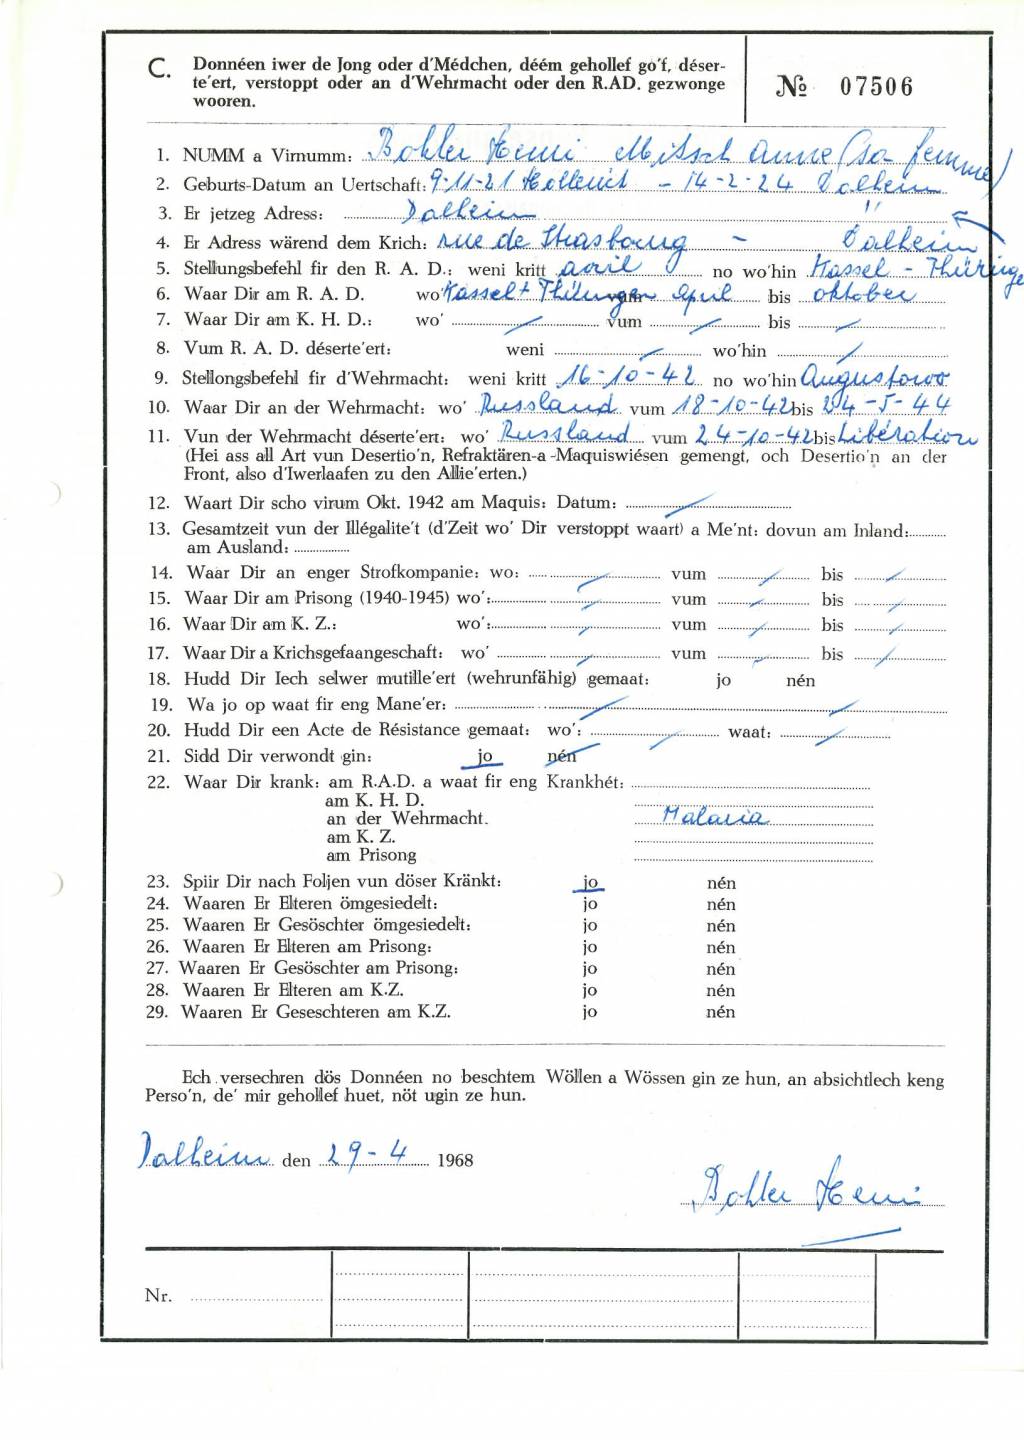 C. Donnéen iwer de Jong oder d'Médchen, déém gehollef go'f, déser-
te'ert, verstoppt oder an d'Wehrmacht oder den R.AD. gezwonge
wooren.
№ 07506
1. NUMM a Virnumm: Bohler Henri Mitsch Anne (sa femme)
2. Geburts-Datum an Uertschaft: 9-11-21 Hollerich - 14-2-24 Dalheim
3. Er jetzeg Adress: Dalheim "
4. Er Adress wärend dem Krich: rue de Strasbourg - Dalheim
5. Stellungsbefehl fir den R. A. D.: weni kritt avril no wo'hin Kassel - Thüringe
6. Waar Dir am R. A. D. wo' Kassel + Thüringen vum April bis oktober
7. Waar Dir am K. H. D.: wo' / vum / bis /
8. Vum R. A. D. déserte'ert: weni / wo'hin /
9. Stellongsbefehl fir d'Wehrmacht: weni kritt 16-10-42 no wo'hin Augustowo
10. Waar Dir an der Wehrmacht: wo' Russland vum 18-10-42 bis 24-5-44
11. Vun der Wehrmacht déserte'ert: wo' Russland vum 24-10-42 bis Libération
(Hei ass all Art vun Desertio'n, Refraktären-a-Maquiswiésen gemengt, och Desertio'n an der
Front, also d'Iwerlaafen zu den Allie'erten.)
12. Waart Dir scho virum Okt. 1942 am Maquis: Datum: /
13. Gesamtzeit vun der Illégalite't (d'Zeit wo' Dir verstoppt waart) a Me'nt: dovun am Inland:
am Ausland:
14. Waar Dir an enger Strofkompanie: wo: / vum / bis /
15. Waar Dir am Prisong (1940-1945) wo': / vum / bis /
16. Waar Dir am K. Z.: wo': / vum / bis /
17. Waar Dir a Krichsgefaangeschaft: wo' / vum / bis /
18. Hudd Dir Iech selwer mutille'ert (wehrunfähig) gemaat: jo nén
19. Wa jo op waat fir eng Mane'er: / /
20. Hudd Dir een Acte de Résistance gemaat: wo': / waat: /
21. Sidd Dir verwondt gin: jo nén
22. Waar Dir krank: am R.A.D. a waat fir eng Krankhét:
am K. H. D.
an der Wehrmacht. Malaria
am K. Z.
am Prisong
23. Spiir Dir nach Foljen vun döser Kränkt: jo nén
24. Waaren Er Elteren ömgesiedelt: jo nén
25. Waaren Er Gesöschter ömgesiedelt: jo nén
26. Waaren Er Elteren am Prisong: jo nén
27. Waaren Er Gesöschter am Prisong: jo nén
28. Waaren Er Elteren am K.Z. jo nén
29. Waaren Er Geseschteren am K.Z. jo nén
Ech versechren dös Donnéen no beschtem Wöllen a Wössen gin ze hun, an absichtlech keng
Perso'n, de' mir gehollef huet, nöt ugin ze hun.
Dalheim den 29-4 1968
Bohler Henri
Nr.